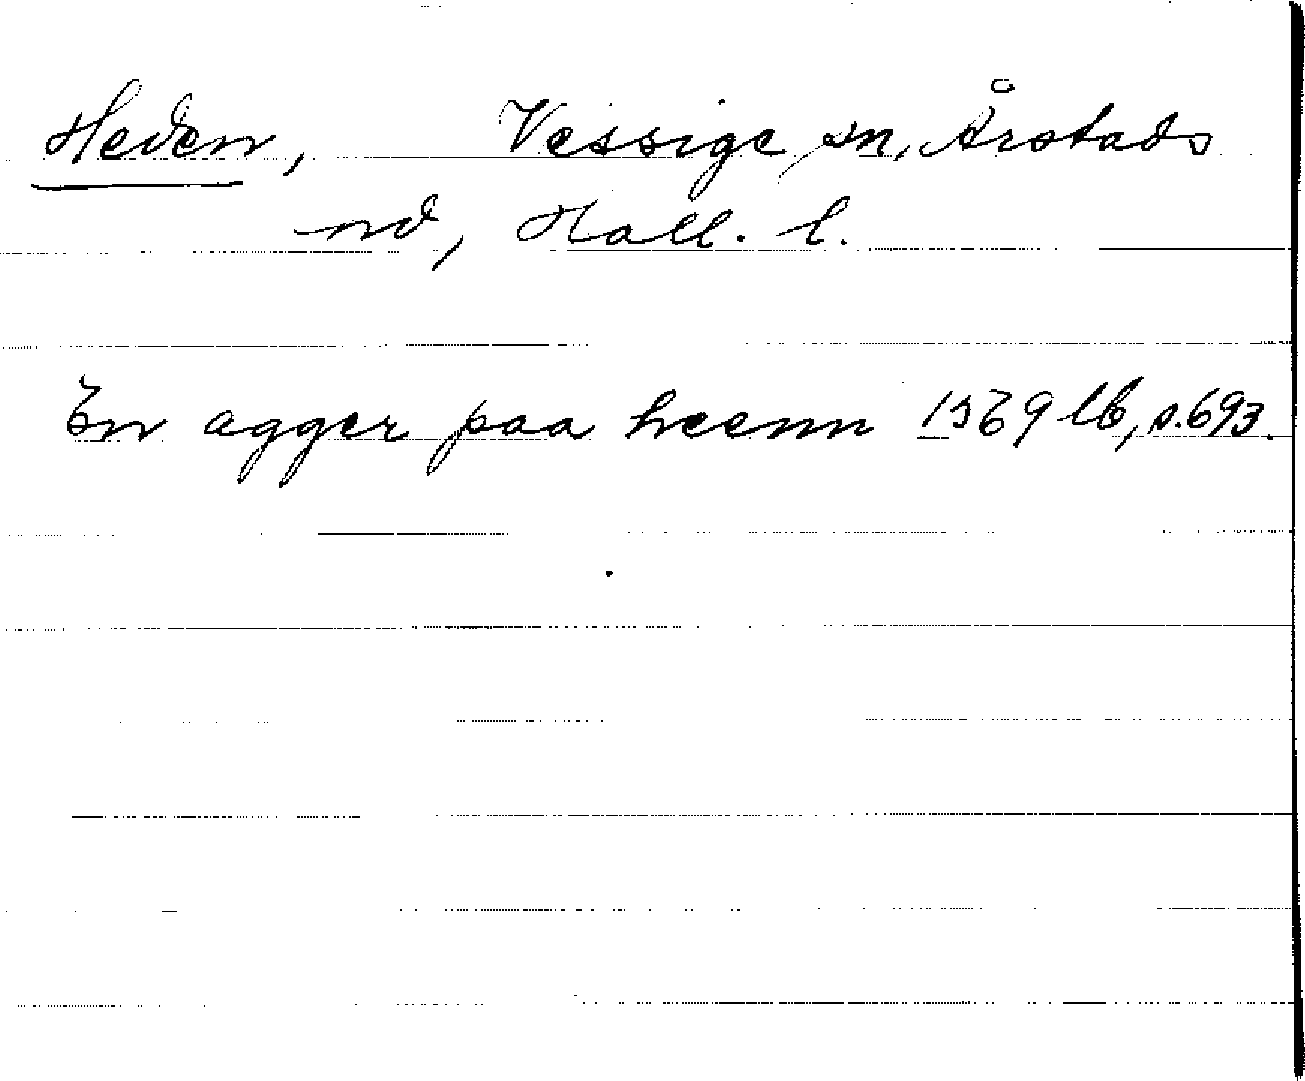 Heden, Vessige sn, Årstads
hd, Hall. l.
En agger paa heenn 1569 lb, s. 693.